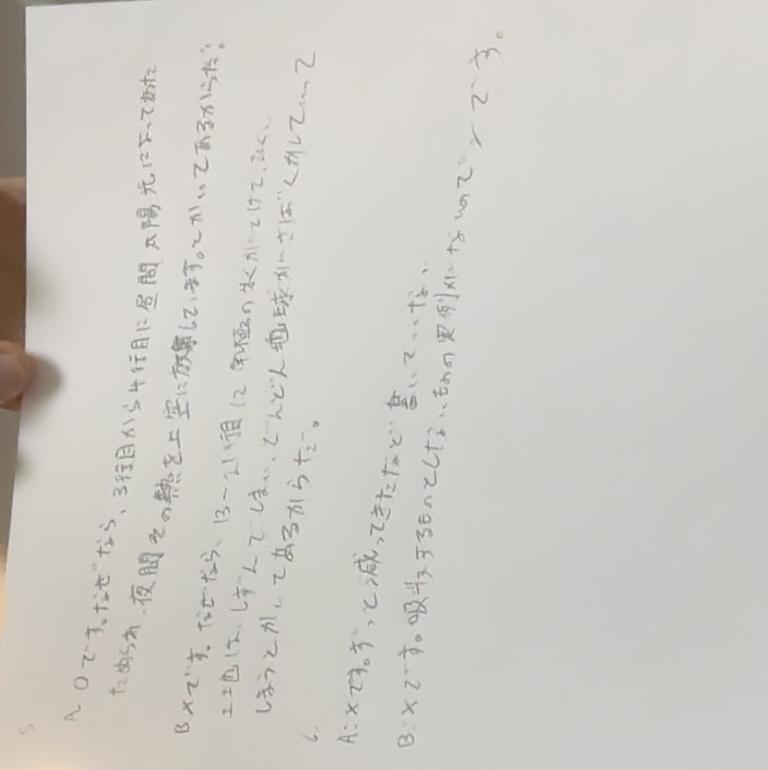 5
A ○です。なぜなら、3行目から4行目に昼間太陽光によってあた
ためられ、夜間その熱を上空に放熱しています。とかいてあるからだ。
B ×です。なぜなら、13〜21行目に南極の氷がとけて、ひくい
土地は、しずんでしまい、どんどん地球がさばくかしていって
しまうとかいてあるからだ。
6.
A:×です。ずっと減ってきたなど書いていない
B:×です。吸収するものとしないものの実例がないので×です。